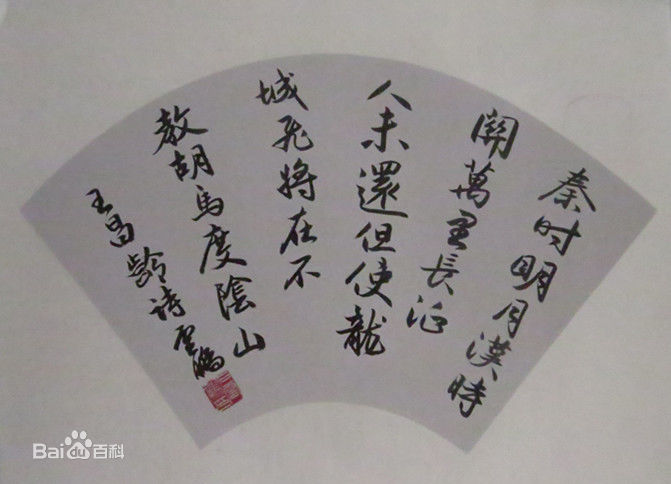 秦时明月漢時
關萬里長征
人未還但使龍
城飛將在不
教胡馬度陰山
王昌齡詩雲鵬
Bai du 百科